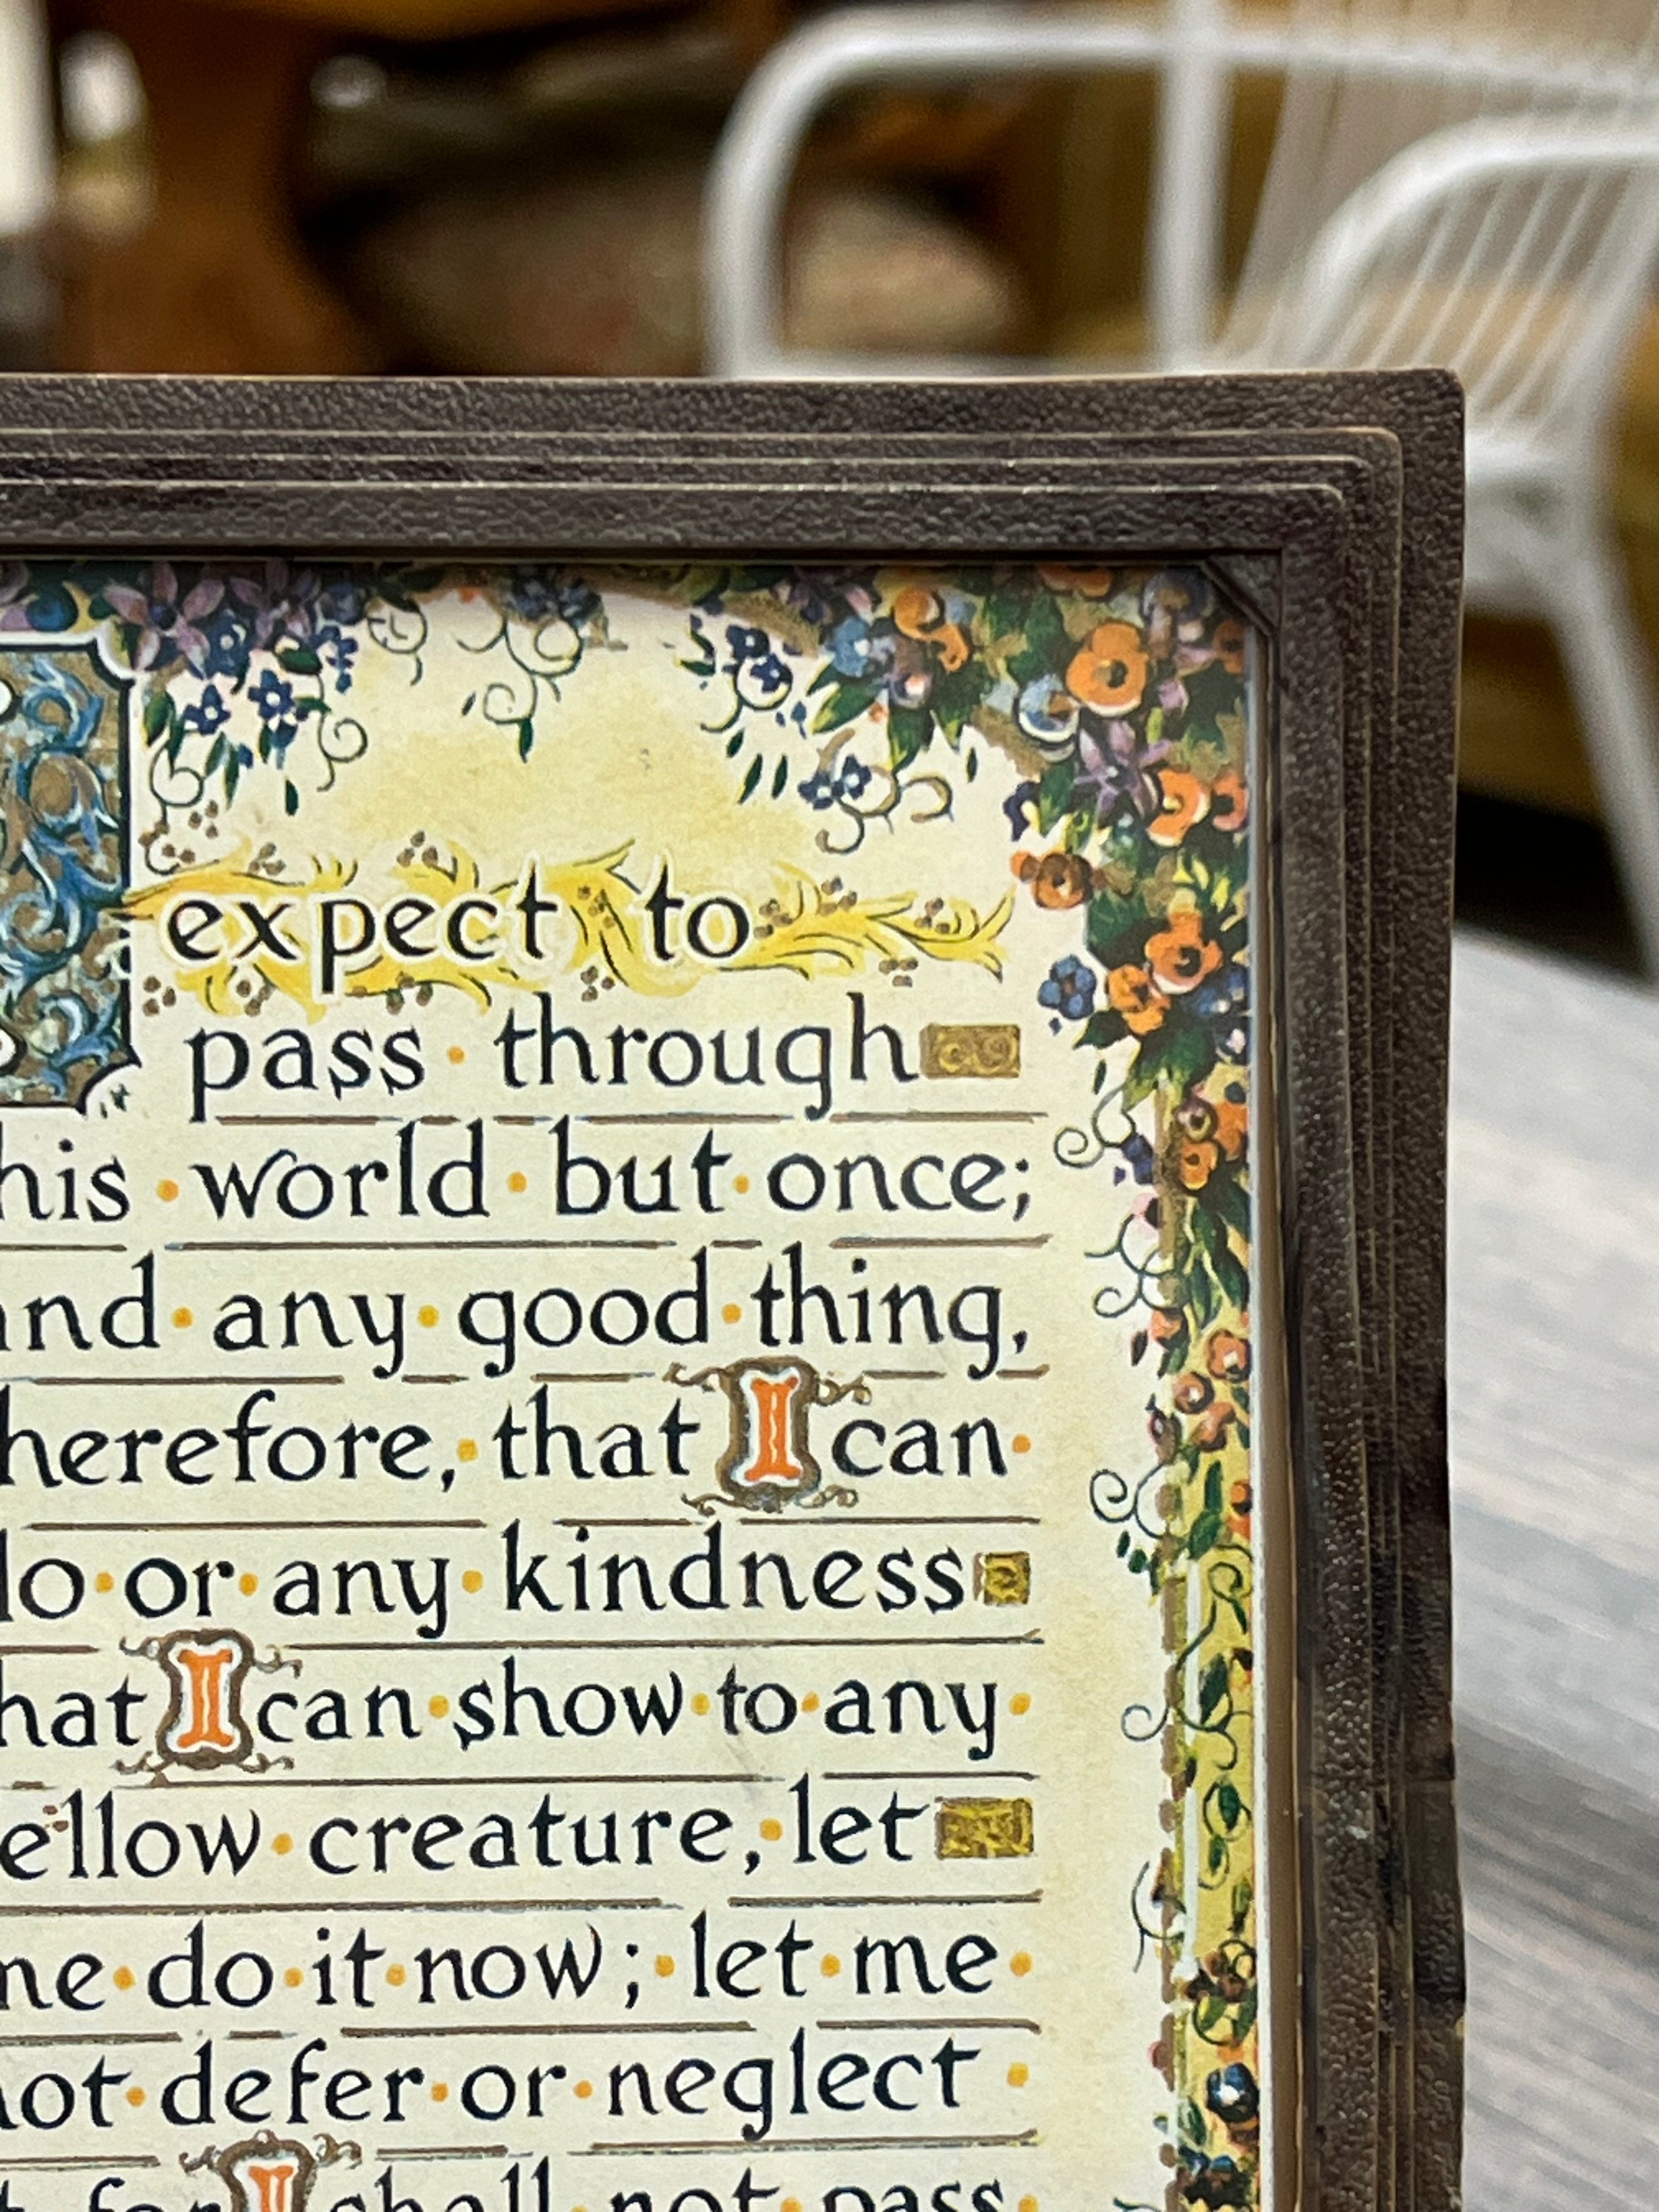 expect to
pass through
his world but once;
nd any good thing,
herefore, that I can
do or any kindness
hat I can show to any
ellow creature, let
me do it now; let me
not defer or neglect
t, for I shall not pass